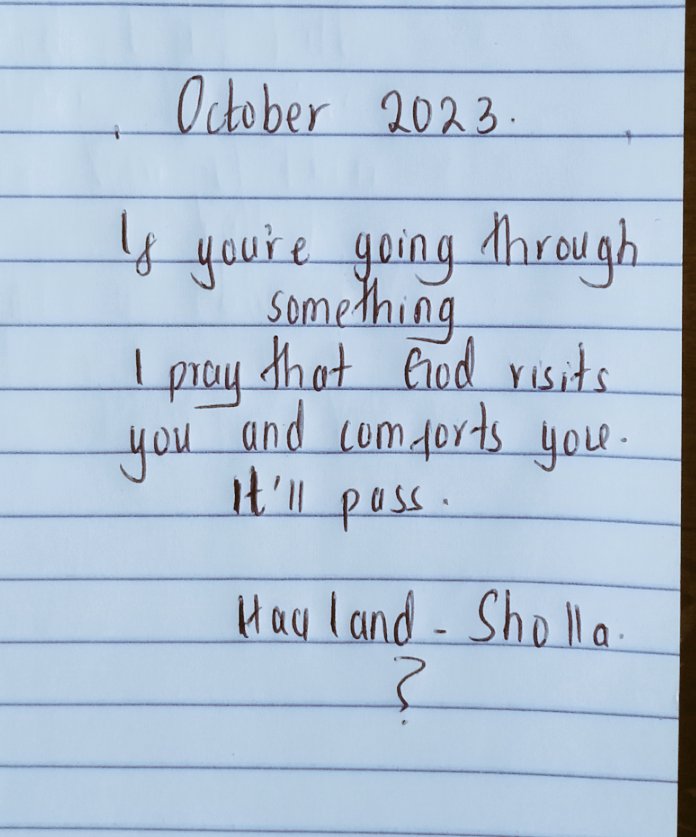 October 2023.
If you're going through
something
I pray that God visits
you and comforts you.
It'll pass.
Hauland - Sholla.
?